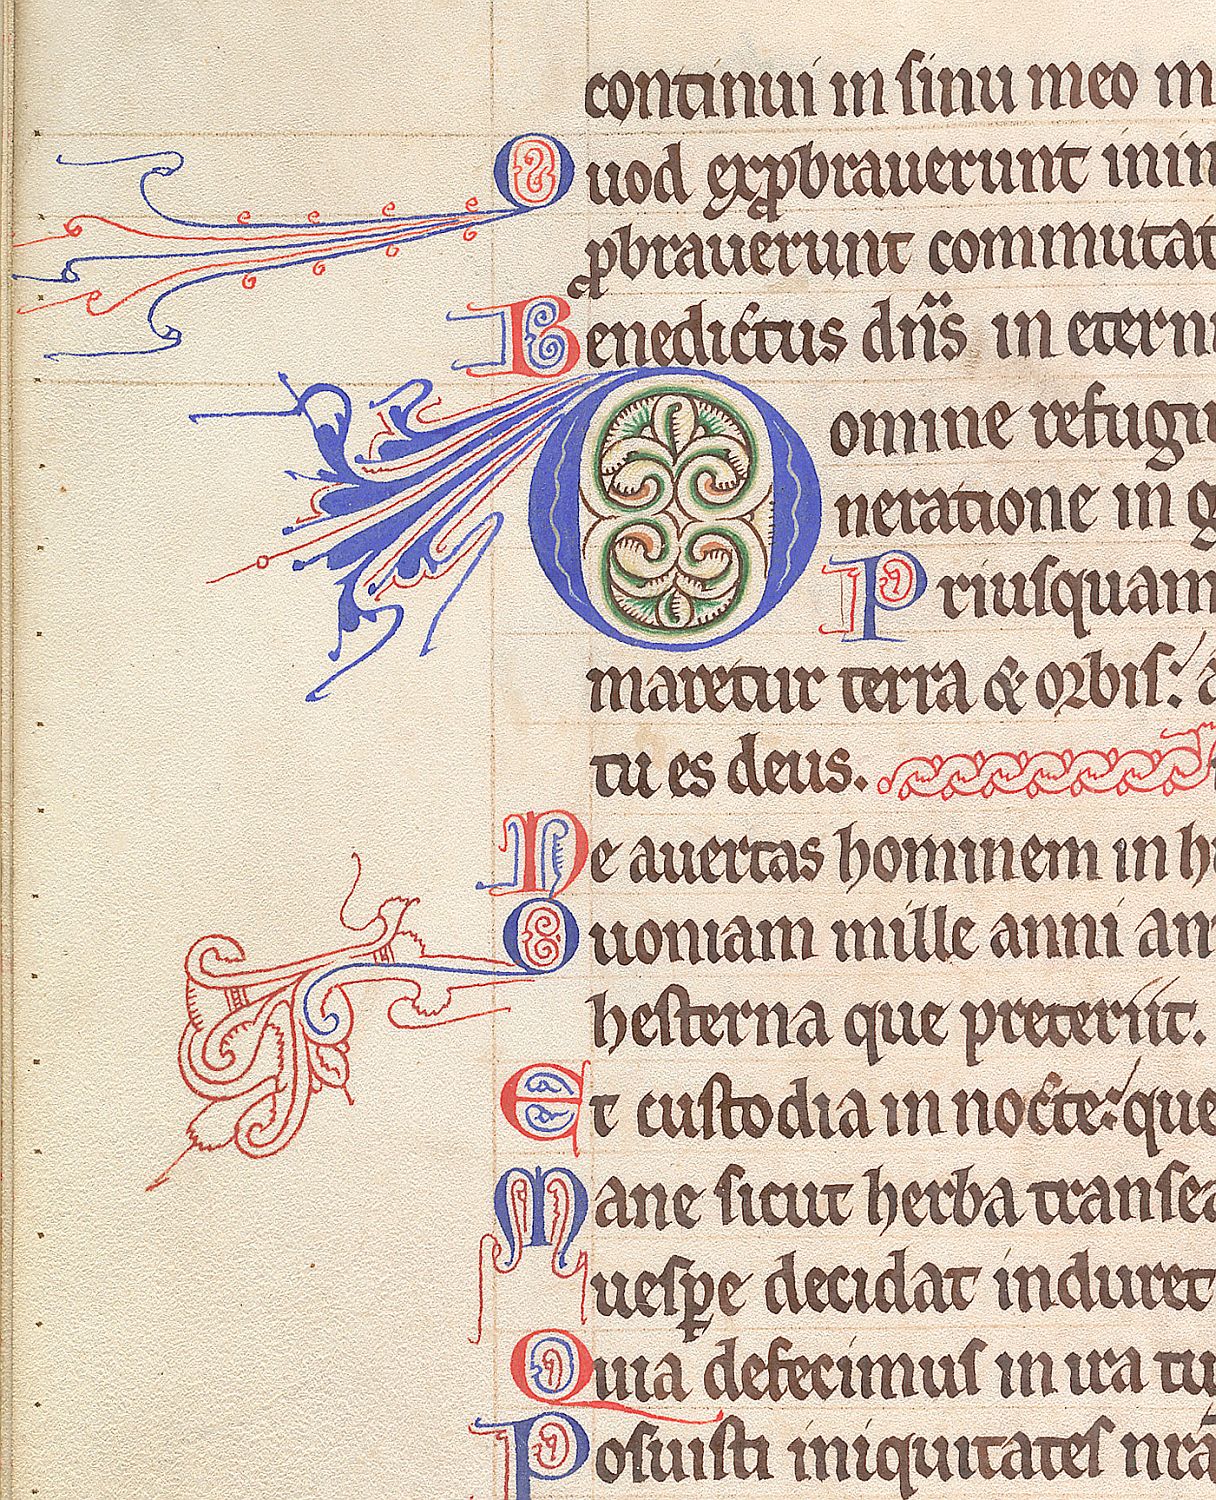 continui in sinu meo m
Quod exꝓbrauerunt inim
ꝓbrauerunt commutat
Benedictus dñs in etern
Domine refugiu
neratione in g
Priusquam
maretur terra & orbis: a
tu es deus.
Ne auertas hominem in hu
Quoniam mille anni an
hesterna que preteriit.
Et custodia in nocte: que
Mane sicut herba transea
uesꝑe decidat induret
Quia defecimus in ira tu
Posuisti iniquitates nr̄a